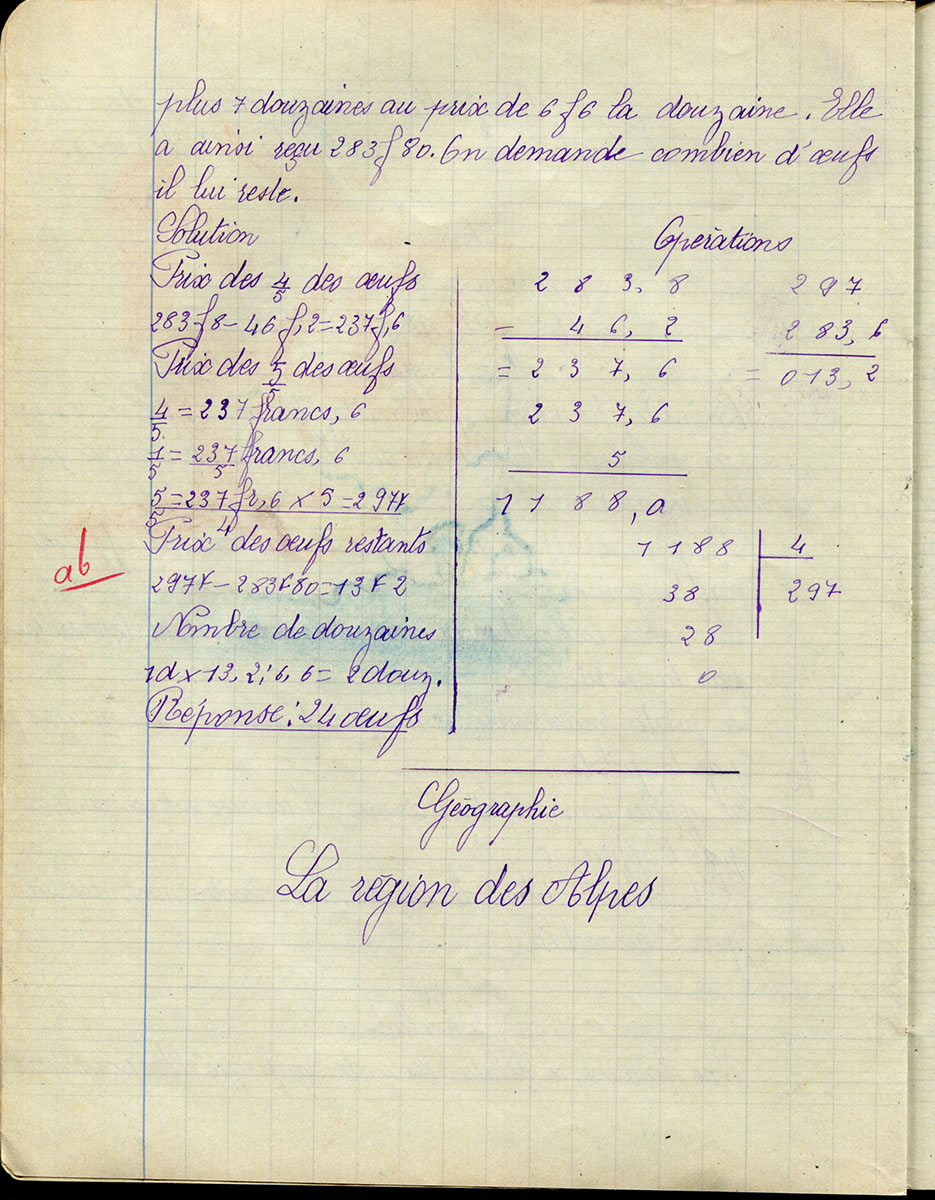 plus 7 douzaines au prix de 6f6 la douzaine. Elle
a ainsi reçu 283f80. On demande combien d'œufs
il lui reste.
Solution
Opérations
Prix des 4/5 des œufs
283f8 - 46f,2 = 237f,6
Prix des 5/5 des œufs
4/5 = 237 francs, 6
1/5 = 237/5 francs, 6
5/5 = 237fr,6 x 5 = 297f
4
Prix des œufs restants
297f - 283f80 = 13f2
Nombre de douzaines
1d x 13,2 : 6,6 = 2 douz.
Réponse : 24 œufs
2 8 3, 8
- 4 6, 2
= 2 3 7, 6
2 3 7, 6
5
1 1 8 8, 0
2 9 7
2 8 3, 6
= 0 1 3, 2
1 1 8 8 | 4
3 8 2 9 7
2 8
0
ab
Géographie
La région des Alpes